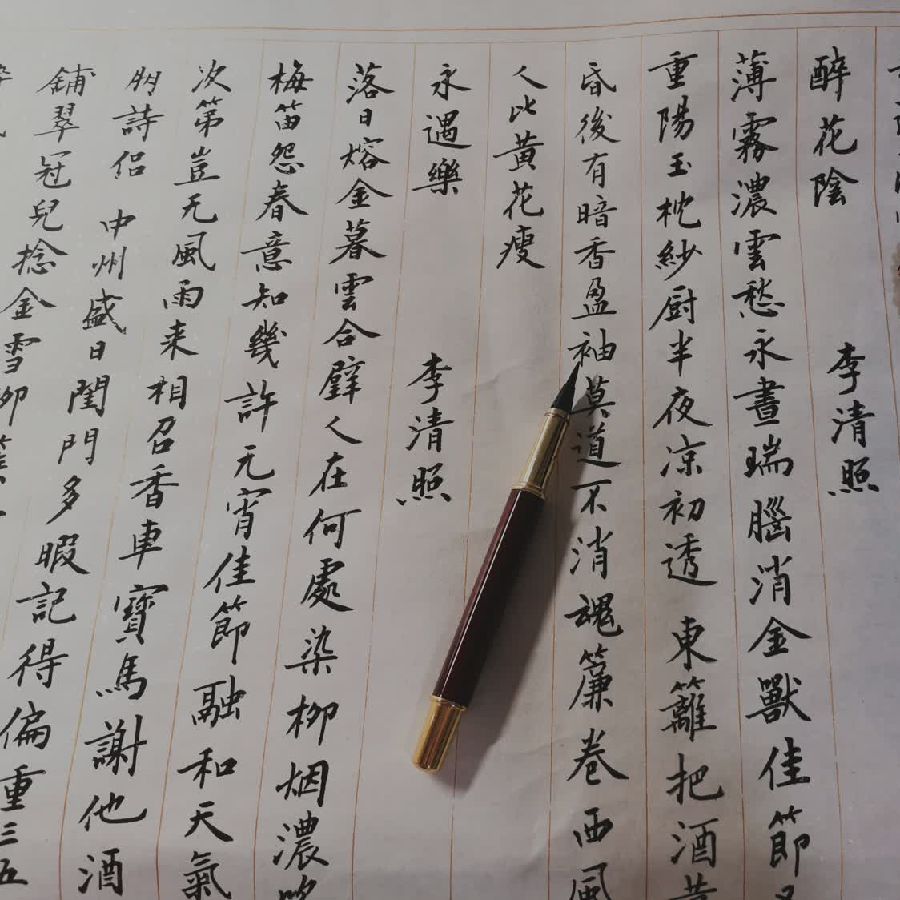 醉花陰 李清照
薄霧濃雲愁永晝瑞腦消金獸佳節
重陽玉枕紗厨半夜凉初透 東籬把酒黄
昏後有暗香盈袖莫道不消魂簾卷西風
人比黄花瘦
永遇樂 李清照
落日熔金暮雲合璧人在何處染柳烟濃吹
梅笛怨春意知幾許元宵佳節融和天氣
次第豈无風雨来相召香車寶馬謝他酒
朋詩侣 中州盛日閨門多暇記得偏重三五
鋪翠冠兒捻金雪柳